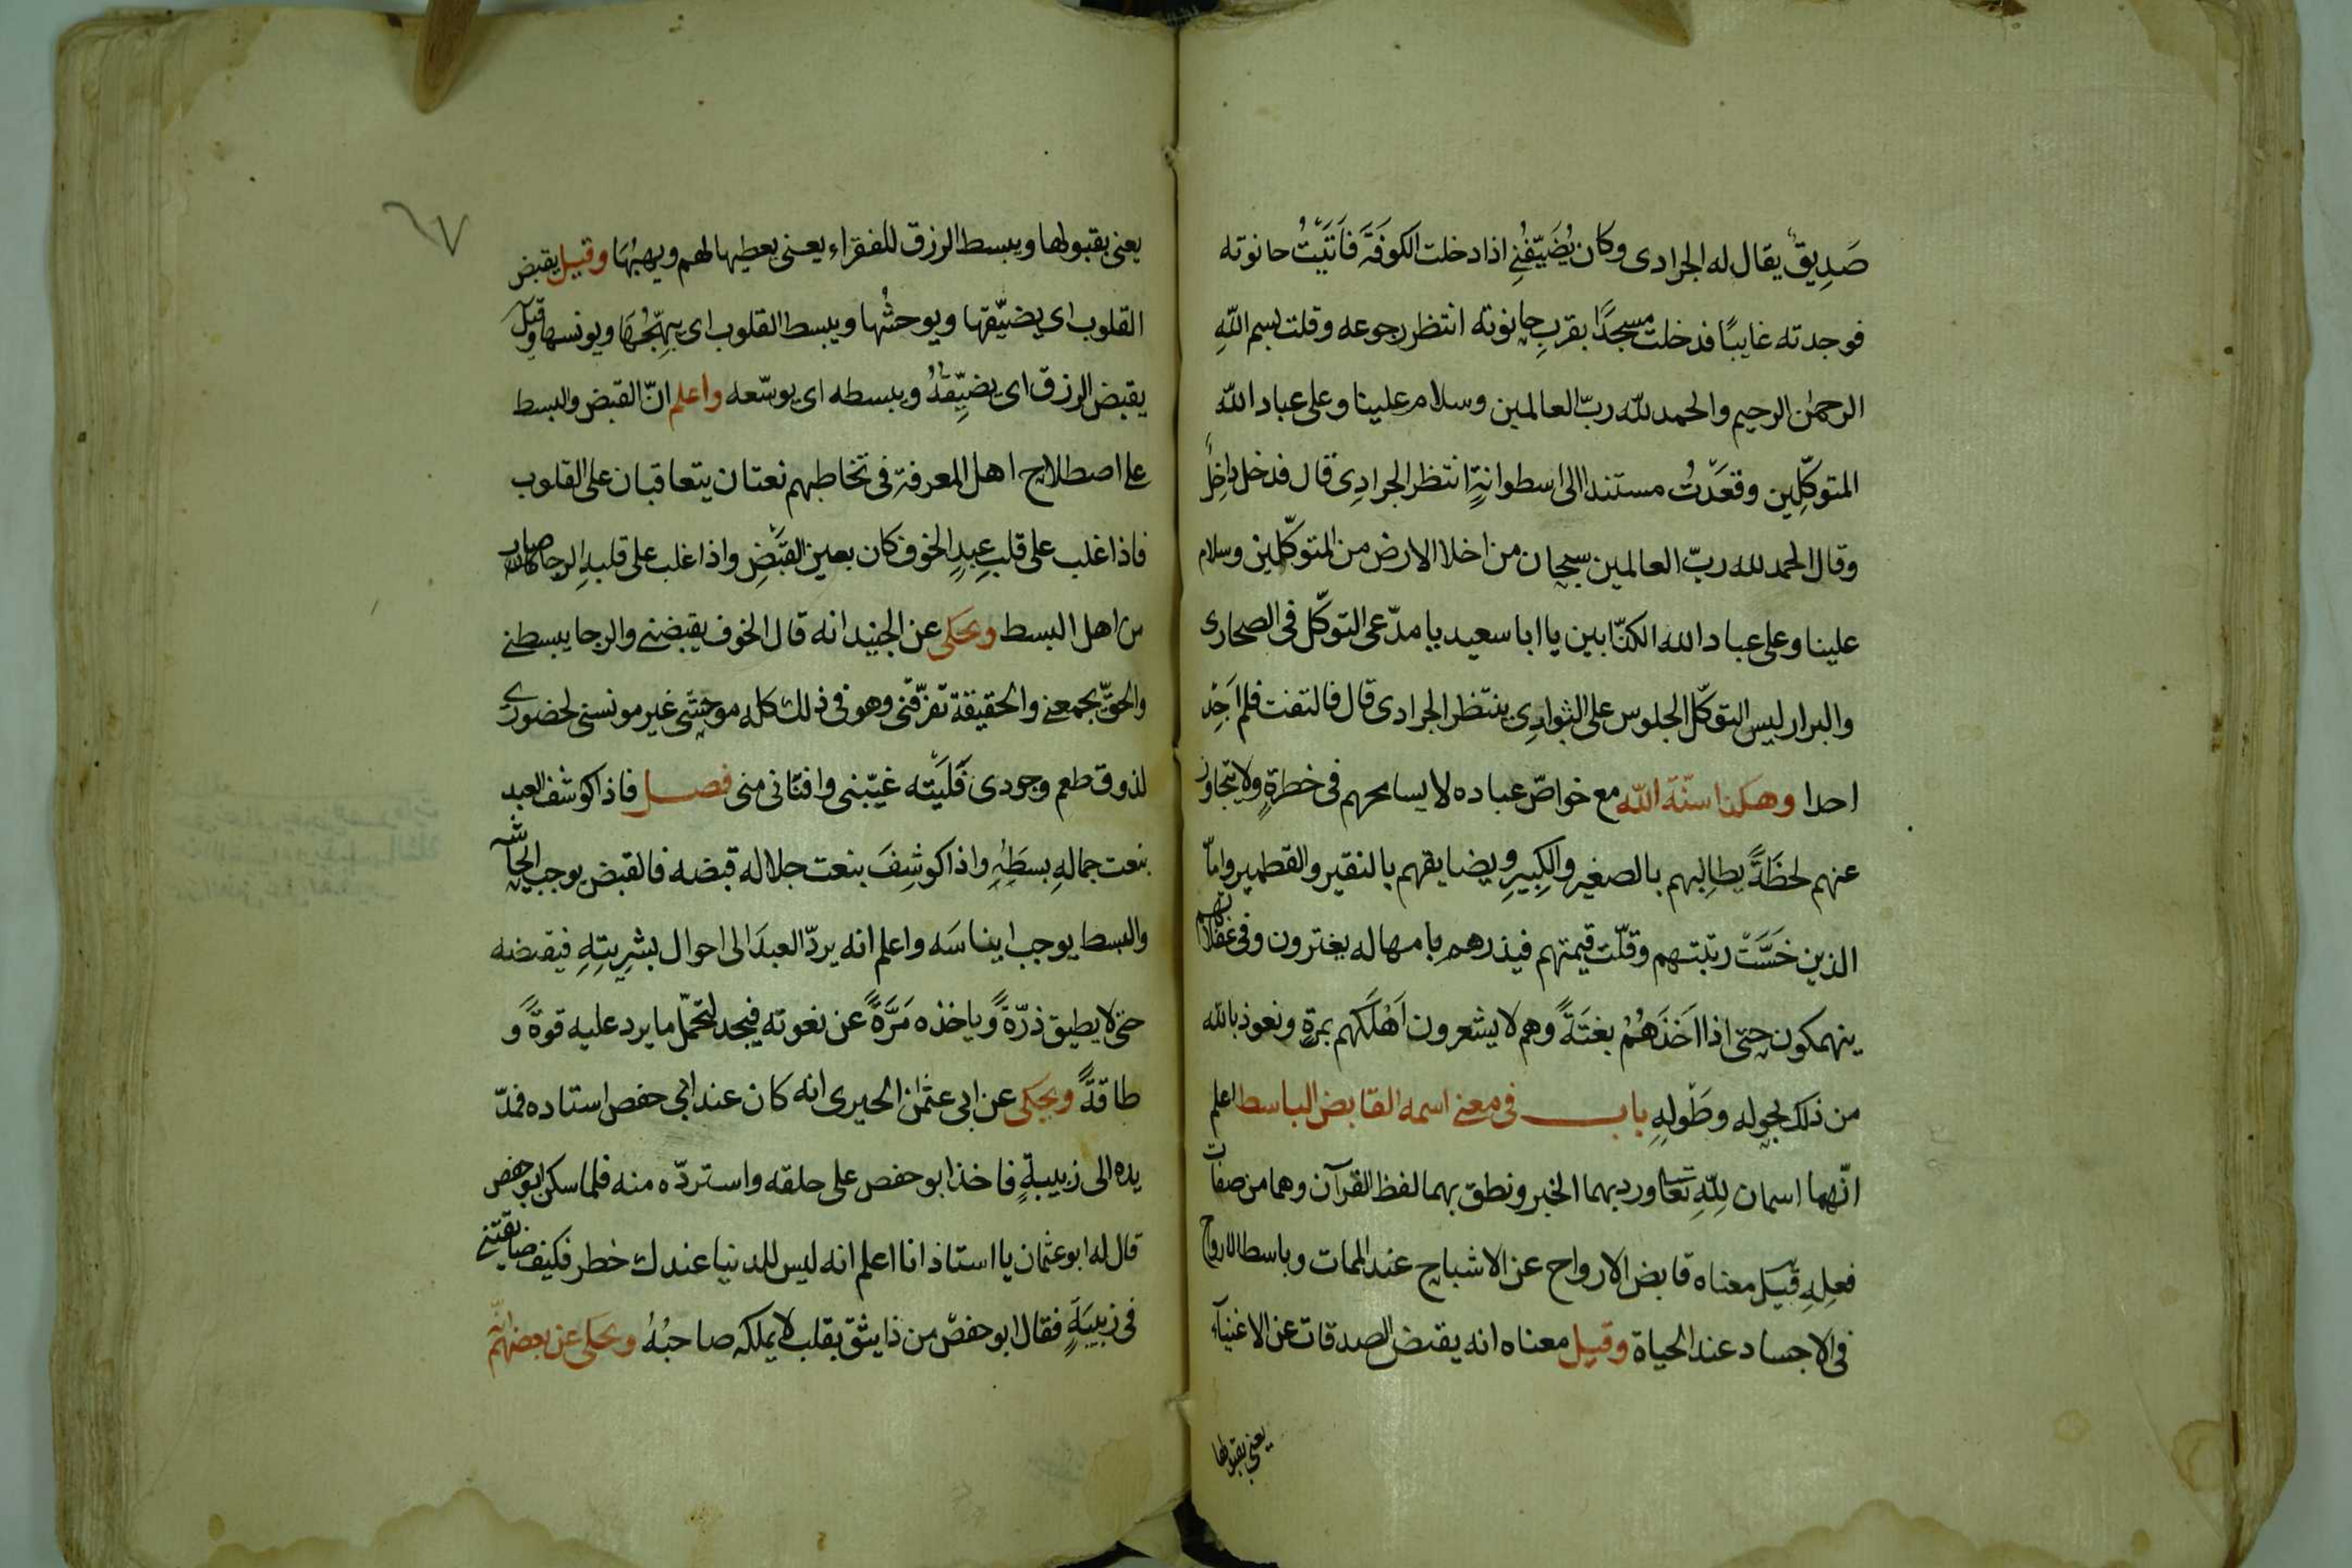 صَدِيقٌ يقال له الجرادى وكان يُضَيِّفُنِى اذا دخلت الكوفَةَ فاَتَيْتُ حانوته
فوجدته غايبًا فدخلت مسجدًا بقربِ حانوته انتظر رجوعه وقلت بسم اللّهِ
الرحمن الرحيم والحمد للّه ربّ العالمين وسلام علينا وعلى عباد اللّه
المتوكّلِين وقعَدْتُ مستندا الى اسطوانةٍ انتظر الجرادِى قال فدخل داخِلٌ
وقال الحمد لله ربّ العالمين سبحان من اخلا الارض من المتوكّلين وسلام
علينا وعلى عباد الله الكذّابين يا ابا سعيد يا مدّعى التوكّل فى الصحارى
والبرار ليس التوكّل الجلوس على البوادِى ينتظر الجرادى قال فالتفت فلم اَجِدْ
احدا وهكذا سنّة اللّه مع خواصّ عباده لا يسامحهم فى خطرةٍ ولا يتجاوز
عنهم لحظَةً يطالِبهم بالصغيرِ والكِبيرِ ويضايقهم بالنقير والقطمير وامّا
الذين خَسَّتْ رتبتهم وقلّت قيمتهم فيذرهم بامهاله يغترون وفى غفلاتهم
ينهمكون حتى اذا اَخَذَهُمْ بغتَةً وهم لا يشعرون اَهْلَكَهم بمرةٍ ونعوذ بالله
من ذلك بحوله وطَوْلِهِ باب فى معنى اسمه القابض الباسط اعلم
انّهما اسمان للّهِ تعا ورد بهما الخبر ونطق بهما لفظ القرآن وهما من صفات
فعلِهِ قيل معناه قابض الارواح عن الاشباح عند الممات وباسط الارواح
فى الاجساد عند الحياة وقيل معناه انه يقبض الصدقات عن الاغنيآء
يعنى بقبولها
٦٧
يعنى بقبولها ويبسط الرزق للفقراء يعنى يعطيها لهم ويهبُهَا وقيل يقبض
القلوب اى يضيّقها ويوحشُها ويبسط القلوب اى يبهّجُهَا ويونسها وقيل
يقبض الرزق اى يضيِّقهُ ويبسطه اى يوسّعه واعلم انّ القبض والبسط
على اصطلاح اهل المعرفة فى تخاطبهم نعتان يتعاقبان على القلوب
فاذا غلب على قلبِ عبدٍ الخوف كان بعين القبَْضِ واذا غلب على قلبهِ الرجا صار
من اهل البسط ويحكى عن الجنيد انه قال الخوف يقبضنى والرجا يبسطنى
والحقّ يجمعنى والحقيقة تفرّقنى وهو فى ذلك كله موحشى غير مونسى لحضورى
لذوق طعم وجودى فَلَيْته غيّبنى وافنانى منى فصل فاذا كوشف العبد
بنعت جمالهِ بسطَهِ واذا كوشِفَ بنعت جلاله قبضه فالقبض يوجب ايحاشه
والبسط يوجب ايناسَه واعلم انه يردّ العبدَ الى احوال بشرِيتهِ فيقبضه
حتى لا يطيق ذرّةً وياخذه مَرَّةً عن نعوته فيجد لتحمّل ما يرد عليه قوةً و
طاقةً ويحكى عن ابى عثمن الحيرى انه كان عند ابى حفص استاده فمدّ
يده الى زبيبةٍ فاخذ ابو حفص على حلقه واستردّه منه فلما سكن ابو حفص
قال له ابو عثمان يا استاذ انا اعلم انه ليس للدنيا عندك خطر فكيف ضايقتنى
فى زبيبَةٍ فقال ابو حفص من ذا يثق بقلب لا يملكه صاحبُهُ ويحكى عن بعضهم انّه